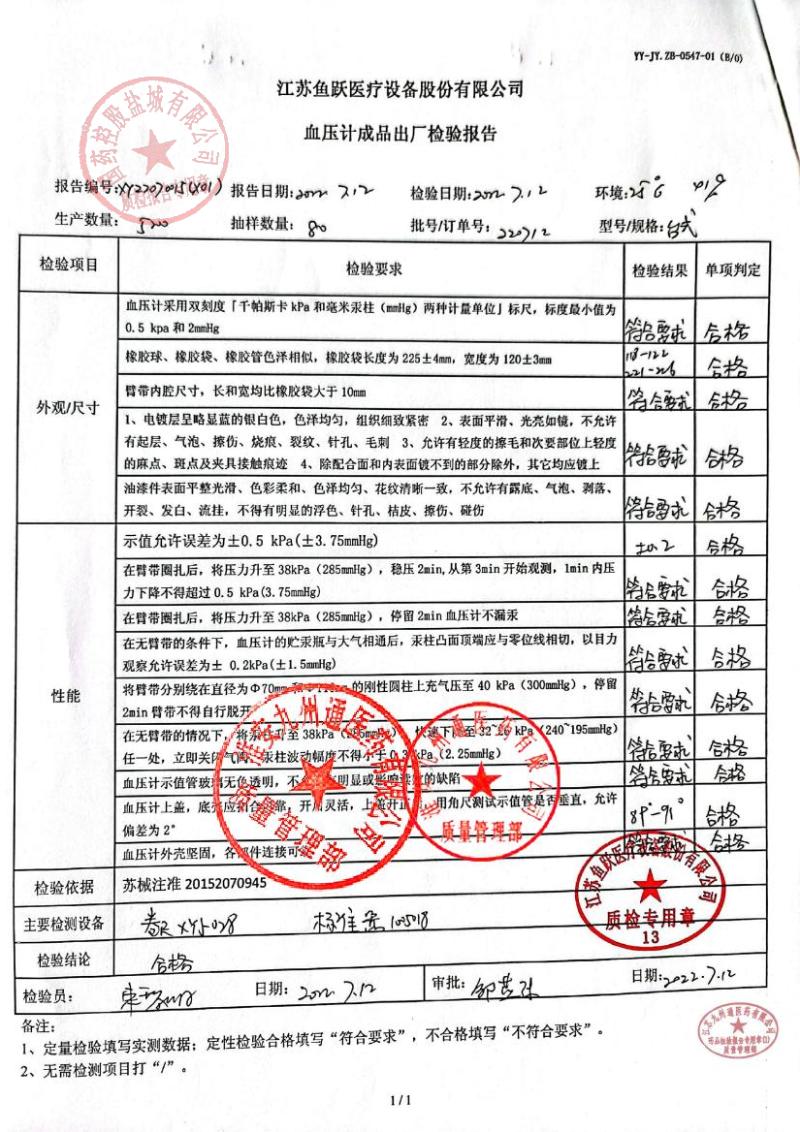 YY-JY.ZB-0547-01（B/0）
江苏鱼跃医疗设备股份有限公司
血压计成品出厂检验报告
报告编号: 报告日期:2022 7.12 检验日期:2022 7.12 环境:25℃
生产数量: 抽样数量: 80 批号/订单号: 220712 型号/规格:台式
检验项目 检验要求 检验结果 单项判定
外观/尺寸
血压计采用双刻度「千帕斯卡 kPa 和毫米汞柱（mmHg）两种计量单位」标尺，标度最小值为
0.5 kpa 和 2mmHg 符合要求 合格
橡胶球、橡胶袋、橡胶管色泽相似，橡胶袋长度为 225±4mm，宽度为 120±3mm 118-122 221-226 合格
臂带内腔尺寸，长和宽均比橡胶袋大于 10mm 符合要求 合格
1、电镀层呈略显蓝的银白色，色泽均匀，组织细致紧密 2、表面平滑、光亮如镜，不允许
有起层、气泡、擦伤、烧痕、裂纹、针孔、毛刺 3、允许有轻度的擦毛和次要部位上轻度
的麻点、斑点及夹具接触痕迹 4、除配合面和内表面镀不到的部分除外，其它均应镀上 符合要求 合格
油漆件表面平整光滑、色彩柔和、色泽均匀、花纹清晰一致，不允许有露底、气泡、剥落、
开裂、发白、流挂，不得有明显的浮色、针孔、桔皮、擦伤、碰伤 符合要求 合格
性能
示值允许误差为±0.5 kPa(±3.75mmHg) ±0.2 合格
在臂带圈扎后，将压力升至 38kPa（285mmHg），稳压 2min,从第 3min 开始观测，1min 内压
力下降不得超过 0.5 kPa(3.75mmHg) 符合要求 合格
在臂带圈扎后，将压力升至 38kPa（285mmHg），停留 2min 血压计不漏汞 符合要求 合格
在无臂带的条件下，血压计的贮汞瓶与大气相通后，汞柱凸面顶端应与零位线相切，以目力
观察允许误差为± 0.2kPa(±1.5mmHg) 符合要求 合格
将臂带分别绕在直径为Φ70mm 的刚性圆柱上充气压至 40 kPa（300mmHg），停留
2min 臂带不得自行脱开 符合要求 合格
在无臂带的情况下，将汞柱升至 38kPa 快速下降至 32~26 kPa（240~195mmHg）
任一处，立即关闭气阀，汞柱波动幅度不得小于 0.3kPa（2.25mmHg） 符合要求 合格
血压计示值管玻璃无色透明，不 有明显或影响读数的缺陷 符合要求 合格
血压计上盖，底 开启灵活，上盖开 用角尺测试示值管是否垂直，允许
偏差为 2° 89°-91° 合格
血压计外壳坚固，各部件连接可靠 符合要求 合格
检验依据 苏械注准 20152070945
主要检测设备
检验结论 合格
检验员: 日期: 2022 7.12 审批: 日期:2022.7.12
备注:
1、定量检验填写实测数据；定性检验合格填写“符合要求”，不合格填写“不符合要求”。
2、无需检测项目打“/”。
1/1
国药控股盐城有限公司
质检报告专用章
淮安九州通医药有限公司
质量管理部
江苏鱼跃医疗设备股份有限公司
质检专用章
13
江苏九州通医药有限公司
药品检验报告专用章(1)
质量管理部